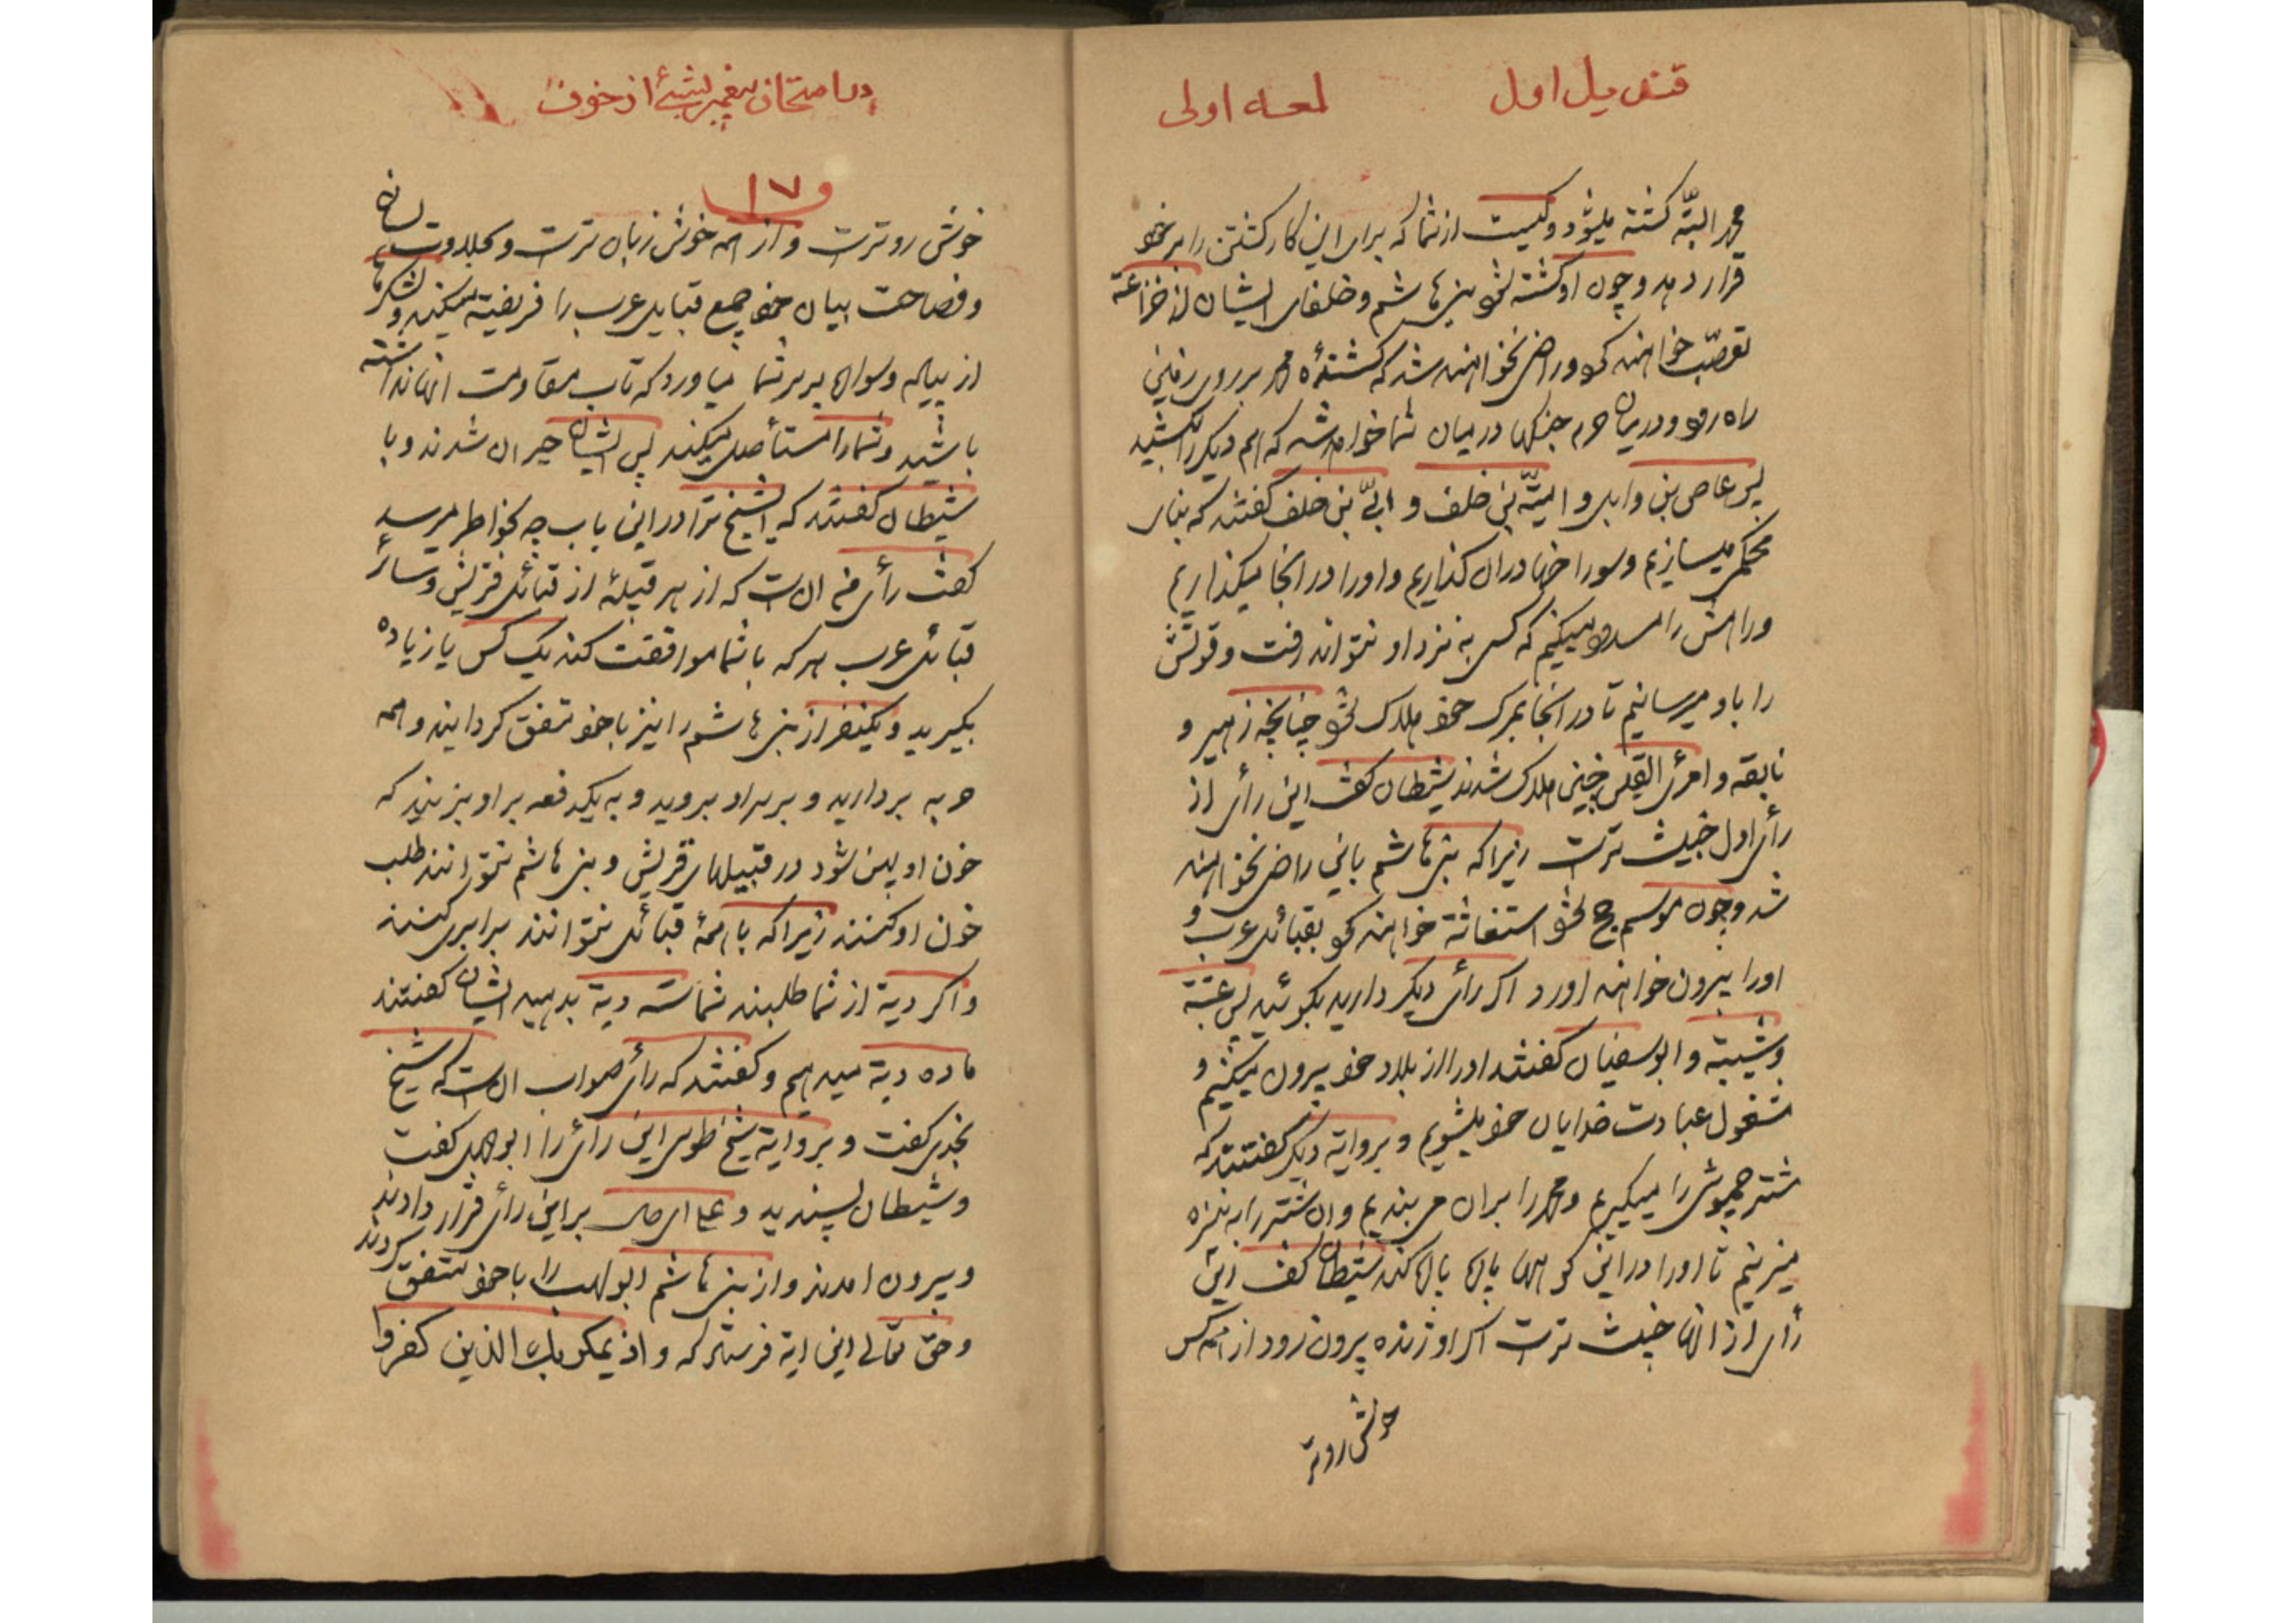 قندیل اول
لمعه اولی
محمد البتّه کشته میشود و کیست از شما که برای این کار کشتن را بر خود
قرار دهد و چون او کشته شود بنی هاشم و خلفای ایشان از خزاعة
تعصّب خواهند کرد و راضی نخواهند شد که کشندهٔ محمد بر روی زمین
راه رود و در میان حرم جنگها در میان شما خواهد شد که هم دیگر را بکشید
پس عاص بن وایل و امیّة بن خلف و ابیّ بن خلف گفتند که بنای
محکمی میسازیم و سوراخها در آن گذاریم و او را در آنجا میگذاریم
و راهش را مسدود میکنیم که کسی به نزد او نتواند رفت و قوتش
را باو میرسانیم تا در آنجا بمرک خود هلاک شود چنانچه زهیر و
نابغه و امرئ القیس چنین هلاک شدند شیطان گفت این رأی از
رأی اول خبیث ترست زیرا که بنی هاشم باین راضی نخواهند
شد و چون موسم حج شود استغاثة خواهند کرد بقبائل عرب و
او را بیرون خواهند آورد اگر رأی دیگر دارید بگوئید پس عتبة
و شیبة و ابوسفیان گفتند او را از بلاد خود بیرون میکنیم و
مشغول عبادت خدایان خود میشویم و بروایة دیگر گفتند که
شتر چموشی را میگیریم و محمد را بران می بندیم و ان شتر را به نیزه
میزنیم تا او را در این کوهها پاره پاره کند شیطان گفت این
رأی از آنها خبیث ترست اگر او زنده بیرون رود از همه کس
خوش روتر
در امتحان پیغمبر بشیء از خوف
و ۱۷
خوش روترست و از همه خوش زبان ترست و بحلاوت لسان
و فصاحت بیان خود جمیع قبایل عرب را فریفتة میکند و لشکرها
از پیاله و سواره بر سر شما میاورد که تاب مقاومت آنها نداشته
باشید و شما را مستأصل میکند پس ایشان حیران شدند و با
شیطان گفتند که ای شیخ ترا در این باب چه بخواطر میرسد
گفت رأی من آن است که از هر قبیلهٔ از قبائل قریش و سائر
قبائل عرب هر که با شما موافقت کند یک کس یا زیاده
بگیرید و یکنفر از بنی هاشم را نیز با خود متفق گردانید و همه
حربه بردارید و بر سر او بروید و به یکدفعه بر او بزنند که
خون او پهن شود در قبیلهای قریش و بنی هاشم نتوانند طلب
خون او کنند زیرا که با همهٔ قبائل نتوانند برابری کنند
و اگر دیة از شما طلبند شما سه دیة بدهید ایشان گفتند
ما ده دیة میدهیم و گفتند که رأی صواب آن است که شیخ
نجدی گفت و بروایة شیخ طوسی این رأی را ابوجهل گفت
و شیطان پسندید و علی ای حال بر این رأی قرار دادند
و بیرون امدند و از بنی هاشم ابولهب را با خود متفق کردند
و حق تعالی این ایة فرستاد که و اذ یمکر بک الذین کفروا